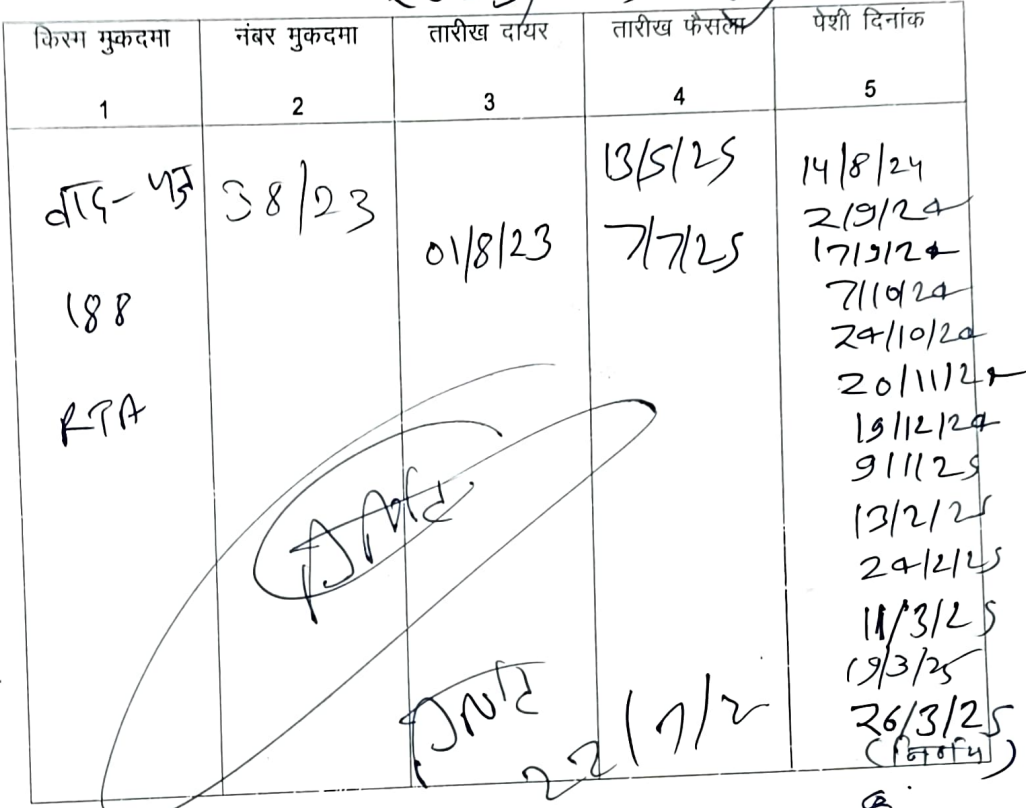 किस्म मुकदमा नंबर मुकदमा तारीख दायर तारीख फैसला पेशी दिनांक
1 2 3 4 5
वाद-पत्र 38/23 01/8/23 13/5/25 14/8/24
188 7/7/25 2/9/24
RTA 17/9/24
7/10/24
24/10/24
20/11/24
19/12/24
9/1/25
13/2/25
24/2/25
11/3/25
19/3/25
26/3/25
(निर्णय)